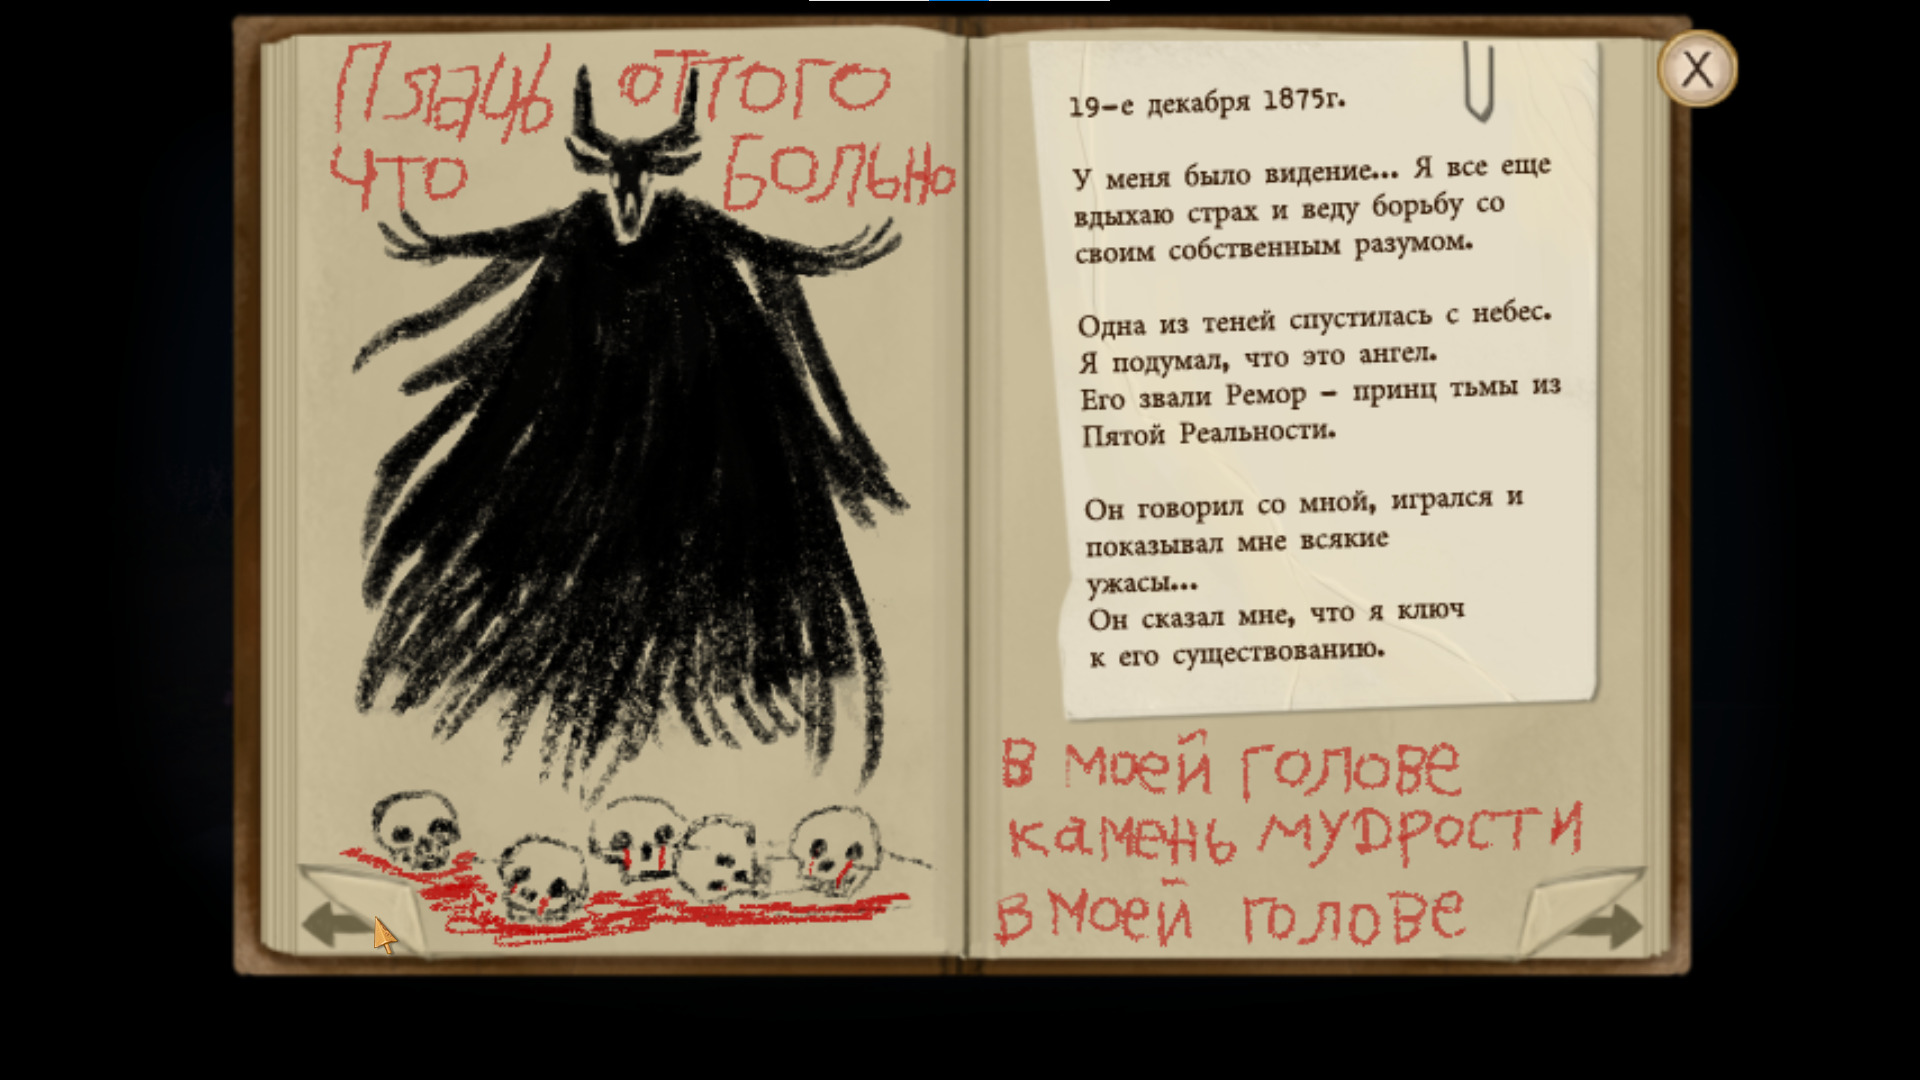 Плачь оттого
что больно
19-е декабря 1875г.
У меня было видение... Я все еще
вдыхаю страх и веду борьбу со
своим собственным разумом.
Одна из теней спустилась с небес.
Я подумал, что это ангел.
Его звали Ремор - принц тьмы из
Пятой Реальности.
Он говорил со мной, игрался и
показывал мне всякие
ужасы...
Он сказал мне, что я ключ
к его существованию.
В моей голове
камень мудрости
в моей голове
X